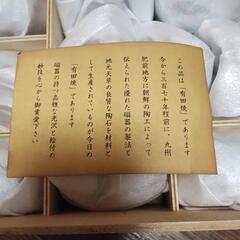 この品は「有田焼」であります
今から三百七十年程前に、九州
肥前地方に朝鮮の陶工によって
伝えられた優れた磁器の製法と
地元天草の良質な陶石を材料と
して生産されているのが今日の
「有田焼」であります
磁器の持つ高雅な光沢と絵付の
妙技を心から御賞愛下さい